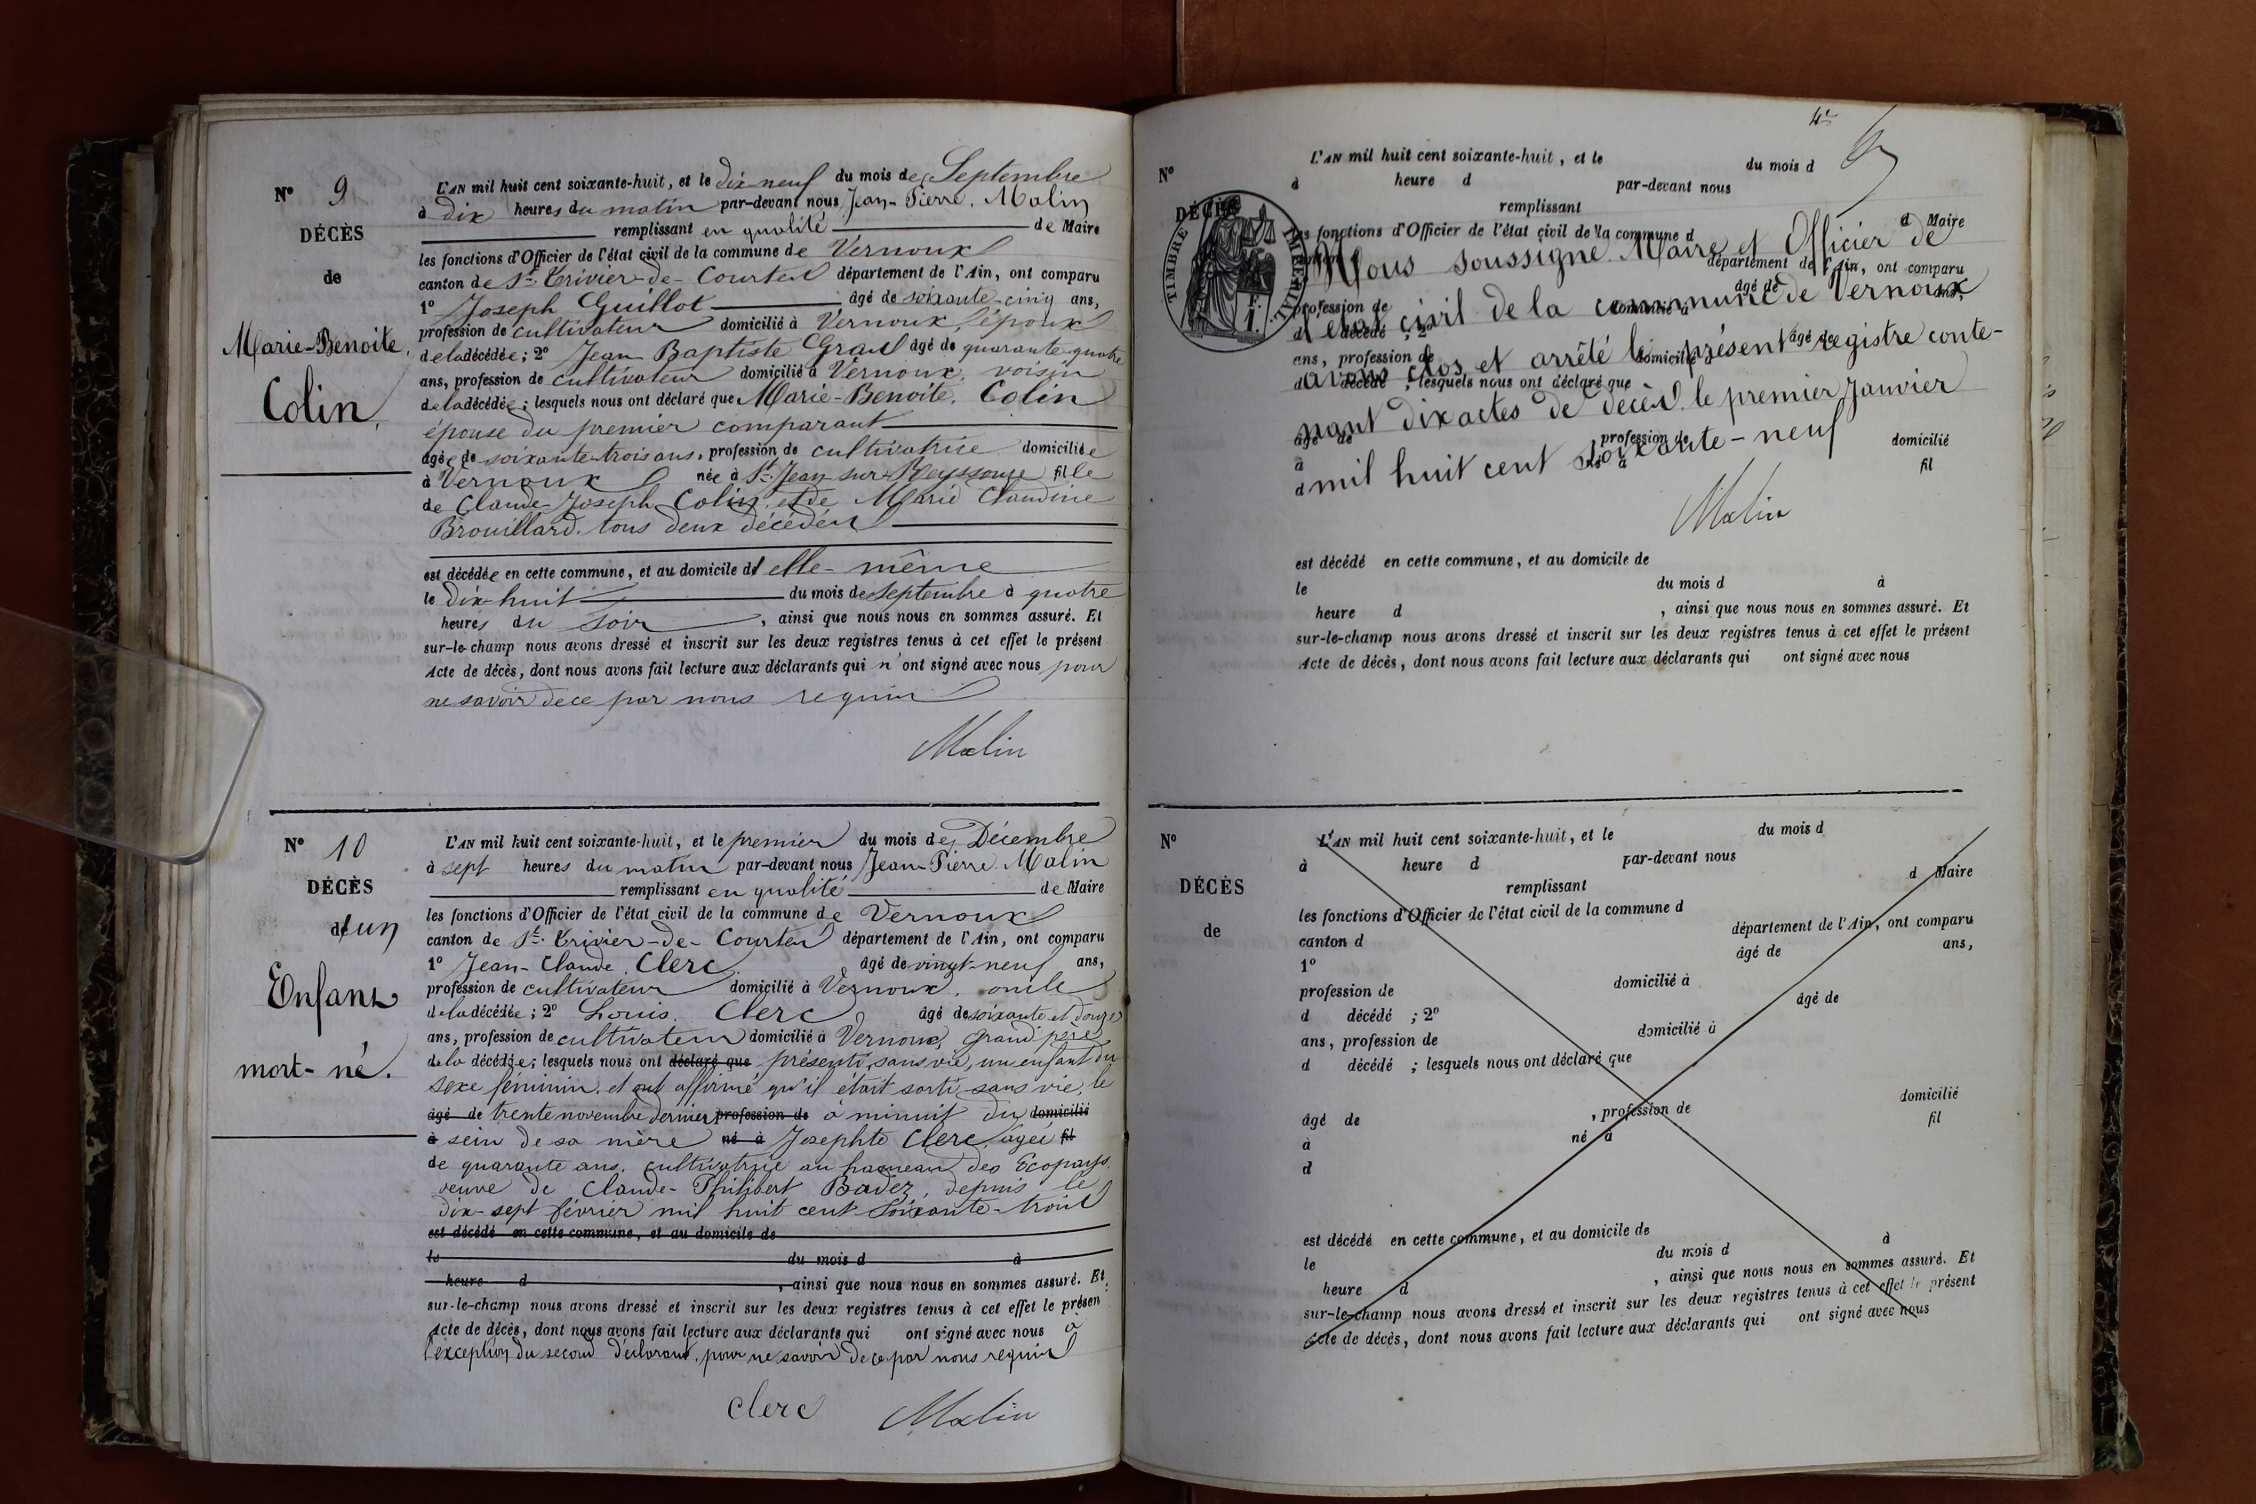 N° 9
DÉCÈS
de
Marie-Benoite
Colin,
L'AN mil huit cent soixante-huit, et le dix neuf du mois de Septembre
à dix heures du matin par-devant nous Jean-Pierre Malin
remplissant en qualité de Maire
les fonctions d'Officier de l'état civil de la commune de Vernoux
canton de St. Trivier-de-Courtes département de l'Ain, ont comparu
1° Joseph Guillot âgé de soixante-cinq ans,
profession de cultivateur domicilié à Vernoux, époux
de la décédée; 2° Jean Baptiste âgé de quarante-quatre
ans, profession de cultivateur domicilié à Vernoux, voisin
de la décédée; lesquels nous ont déclaré que Marie-Benoite Colin
épouse du premier comparant
agée de soixante-trois ans, profession de cultivatrice domiciliée
à Vernoux née à St. Jean-sur-Reyssouze fille
de Claude-Joseph Colin et de Marie Claudine
Brouillard tous deux décédés
est décédée en cette commune, et au domicile d'elle-même
le dix-huit du mois de Septembre à quatre
heures du soir, ainsi que nous nous en sommes assuré. Et
sur-le-champ nous avons dressé et inscrit sur les deux registres tenus à cet effet le présent
Acte de décès, dont nous avons fait lecture aux déclarants qui n'ont signé avec nous pour
ne savoir de ce par nous requis
Malin
N° 10
DÉCÈS
d'un
Enfant
mort-né.
L'AN mil huit cent soixante-huit, et le premier du mois de Décembre
à sept heures du matin par-devant nous Jean-Pierre Malin
remplissant en qualité de Maire
les fonctions d'Officier de l'état civil de la commune de Vernoux
canton de St. Trivier-de-Courtes département de l'Ain, ont comparu
1° Jean-Claude Clerc âgé de vingt-neuf ans,
profession de cultivateur domicilié à Vernoux, oncle
de la décédée; 2° Louis Clerc âgé de soixante et douze
ans, profession de cultivateur domicilié à Vernoux, grand père
de la décédée; lesquels nous ont déclaré que présenté, sans vie, un enfant du
sexe féminin, et ont affirmé qu'il était sorti sans vie, le
âgé de trente novembre dernier profession de à minuit du domicilié
à sein de sa mère né à Josephte Clerc, agée fil
de quarante ans, cultivatrice au hameau des Ecopays
veuve de Claude-Philibert Badez, depuis le
dix-sept février mil huit cent soixante-trois
est décédé en cette commune, et au domicile de
le du mois d à
heure d, ainsi que nous nous en sommes assuré. Et
sur-le-champ nous avons dressé et inscrit sur les deux registres tenus à cet effet le présen
Acte de décès, dont nous avons fait lecture aux déclarants qui ont signé avec nous à
l'exception du second déclarant, pour ne savoir de ce par nous requis
Clerc Malin
4e
N°
DÉCÈS
TIMBRE IMPÉRIAL
L'AN mil huit cent soixante-huit, et le du mois d
à heure d par-devant nous
remplissant d Maire
les fonctions d'Officier de l'état civil de la commune d
Nous soussigné Maire et Officier de
département de l'Ain, ont comparu
âgé de ans,
profession de domicilié à
l'état civil de la commune de Vernoux
d décédé ; 2° âgé de
ans, profession de domicilié
avons clos et arrêté le présent registre conte-
d décédé ; lesquels nous ont déclaré que
nant dix actes de décès, le premier Janvier
âgé de profession de domicilié
à né à fil
d mil huit cent soixante-neuf
Malin
est décédé en cette commune, et au domicile de
le du mois d à
heure d , ainsi que nous nous en sommes assuré. Et
sur-le-champ nous avons dressé et inscrit sur les deux registres tenus à cet effet le présent
Acte de décès, dont nous avons fait lecture aux déclarants qui ont signé avec nous
N°
DÉCÈS
de
L'AN mil huit cent soixante-huit, et le du mois d
à heure d par-devant nous
remplissant d Maire
les fonctions d'Officier de l'état civil de la commune d
canton d département de l'Ain, ont comparu
1° âgé de ans,
profession de domicilié à
d décédé ; 2° âgé de
ans, profession de domicilié à
d décédé ; lesquels nous ont déclaré que
âgé de , profession de domicilié
à né à fil
d
est décédé en cette commune, et au domicile de
le du mois d à
heure d , ainsi que nous nous en sommes assuré. Et
sur-le-champ nous avons dressé et inscrit sur les deux registres tenus à cet effet le présent
Acte de décès, dont nous avons fait lecture aux déclarants qui ont signé avec nous